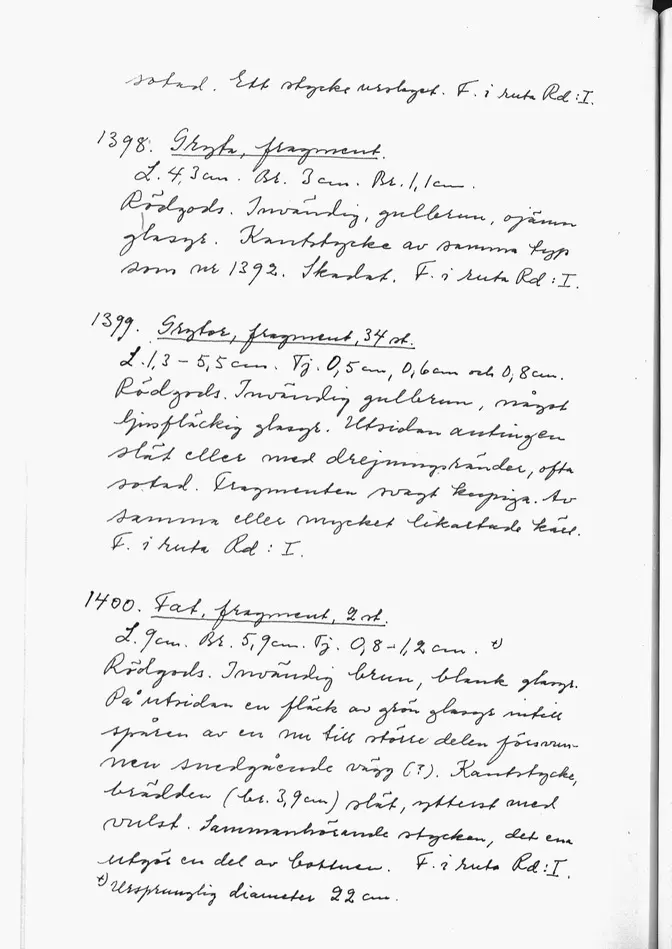 sotad. Ett stycke urslaget. F. i ruta Rd:I.
1398. Gryta, fragment.
L. 4,3cm. Br. 3cm. Br. 1,1cm.
Rödgods. Invändig, gulbrun, ojämn
glasyr. Kantstycke av samma typ
som nr 1392. Skadat. F. i ruta Rd:I.
1399. Grytor, fragment, 34 st.
L. 1,3-5,5cm. Tj. 0,5cm, 0,6cm och 0,8cm.
Rödgods. Invändig gulbrun, något
ljusfläckig glasyr. Utsidan antingen
slät eller med drejningsränder, ofta
sotad. Fragmenten svagt kupiga. Av
samma eller mycket likartade kärl.
F. i ruta Rd: I.
1400. Fat, fragment, 2 st.
L. 9cm. Br. 5,9cm. Tj. 0,8-1,2cm.
Rödgods. Invändig brun, blank glasyr.
På utsidan en fläck av grön glasyr intill
spåren av en nu till större delen försvun-
nen snedgående vägg (?). Kantstycke,
brädden (br. 3,9cm) slät, ytterst med
vulst. Sammanhörande stycken, det ena
utgör en del av bottnen. F. i ruta Rd:I.
Ursprunglig diameter 22cm.